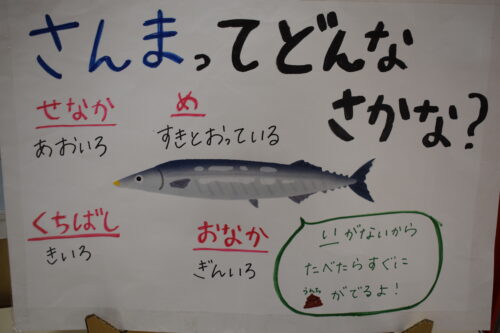 さんまってどんな
さかな?
せなか
あおいろ
め
すきとおっている
くちばし
きいろ
おなか
ぎんいろ
いがないから
たべたらすぐに
うんち
がでるよ!